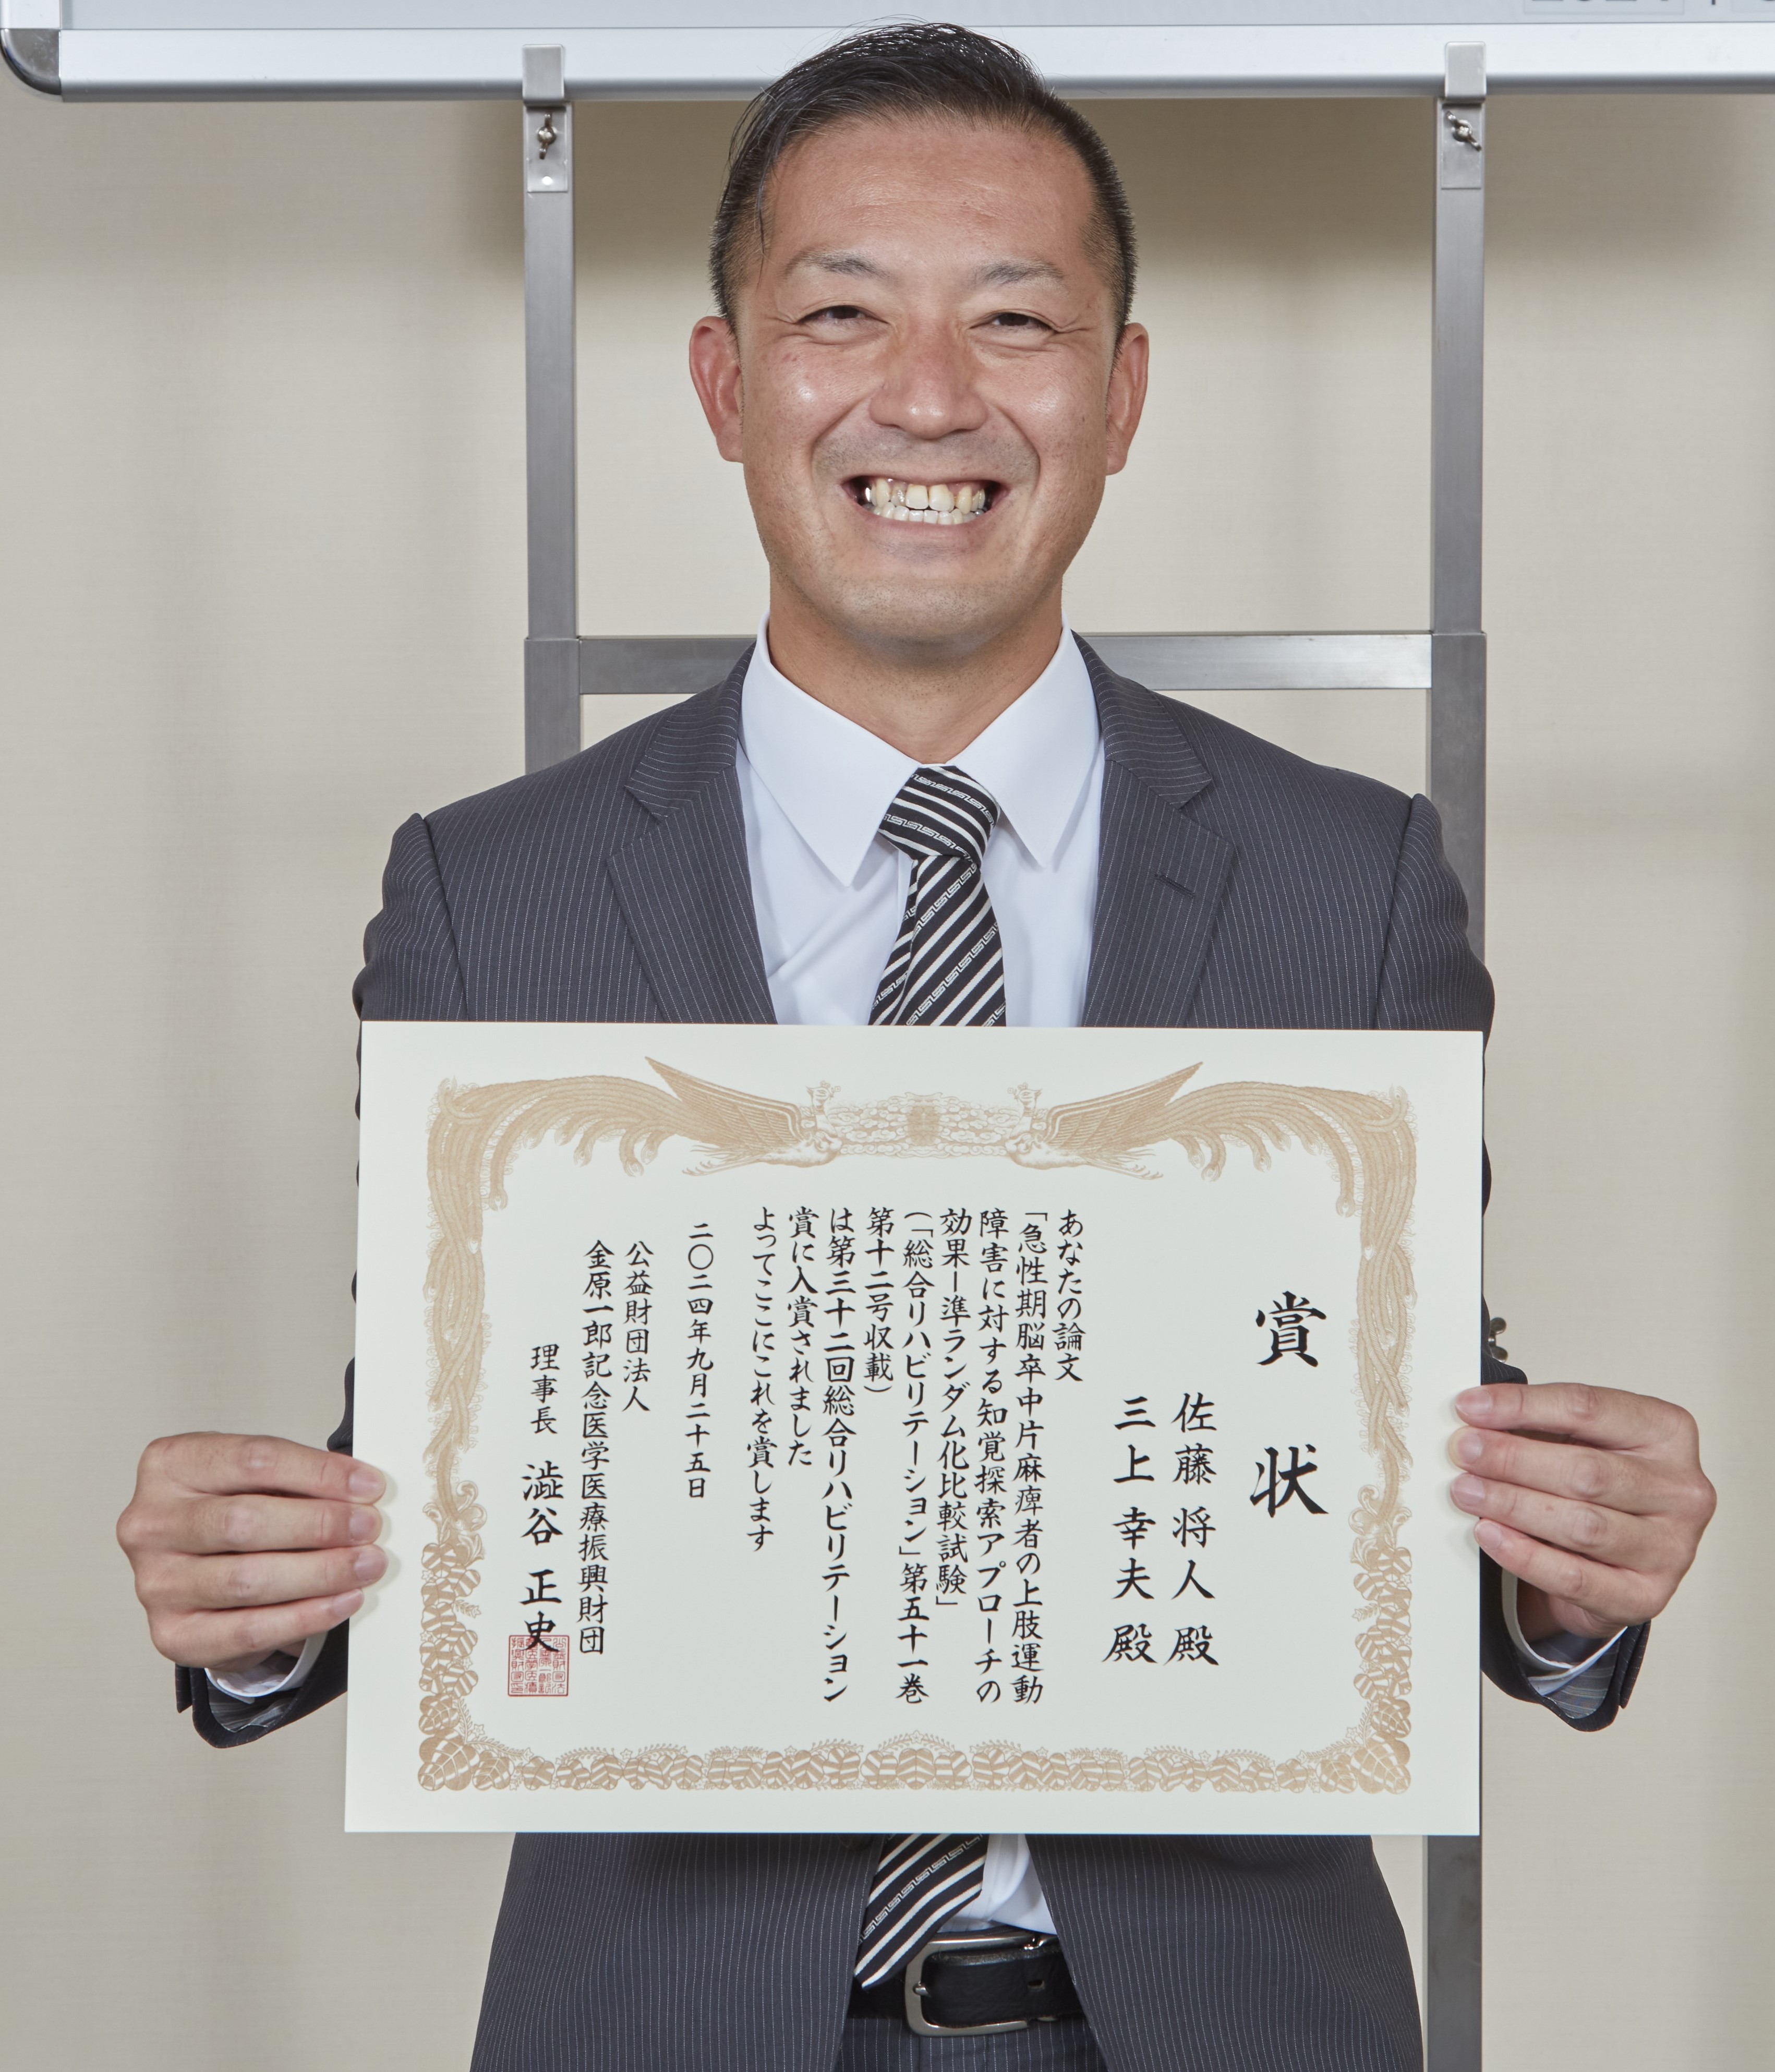 賞状
佐藤将人殿
三上幸夫殿
あなたの論文
「急性期脳卒中片麻痺者の上肢運動
障害に対する知覚探索アプローチの
効果ー準ランダム化比較試験」
(「総合リハビリテーション」第五十一巻
第十二号収載)
は第三十二回総合リハビリテーション
賞に入賞されました
よってここにこれを賞します
二〇二四年九月二十五日
公益財団法人
金原一郎記念医学医療振興財団
理事長 澁谷正史